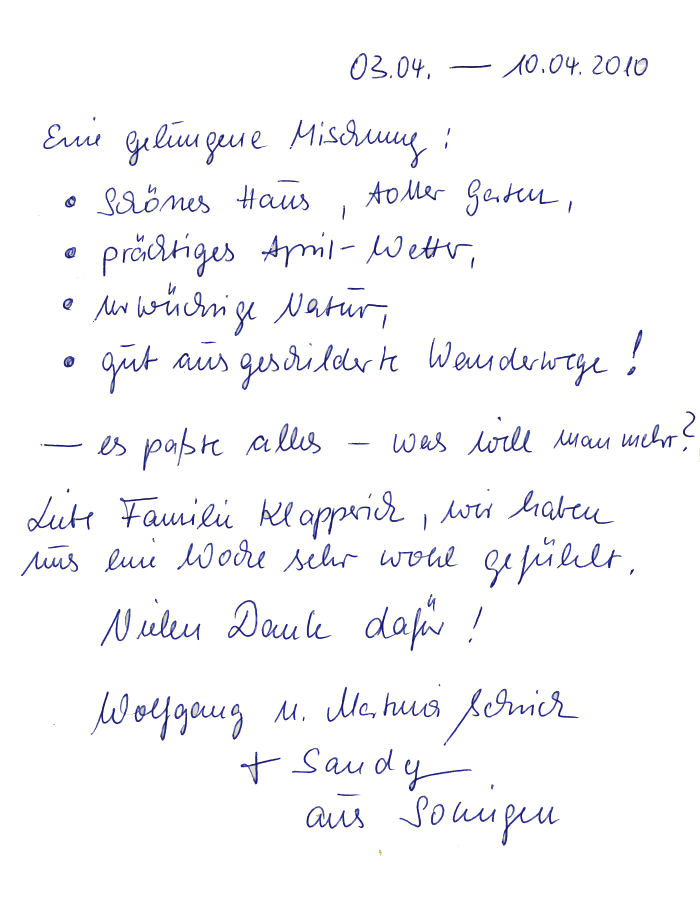 03.04. — 10.04.2010
Eine gelungene Mischung:
• Schönes Haus, toller Garten,
• prächtiges April-Wetter,
• urwüchsige Natur,
• gut ausgeschilderte Wanderwege!
— es paßte alles – was will man mehr?
Liebe Familie Klapperich, wir haben
uns eine Woche sehr wohl gefühlt.
Vielen Dank dafür!
Wolfgang u. Martina Schick
+ Sandy
aus Solingen